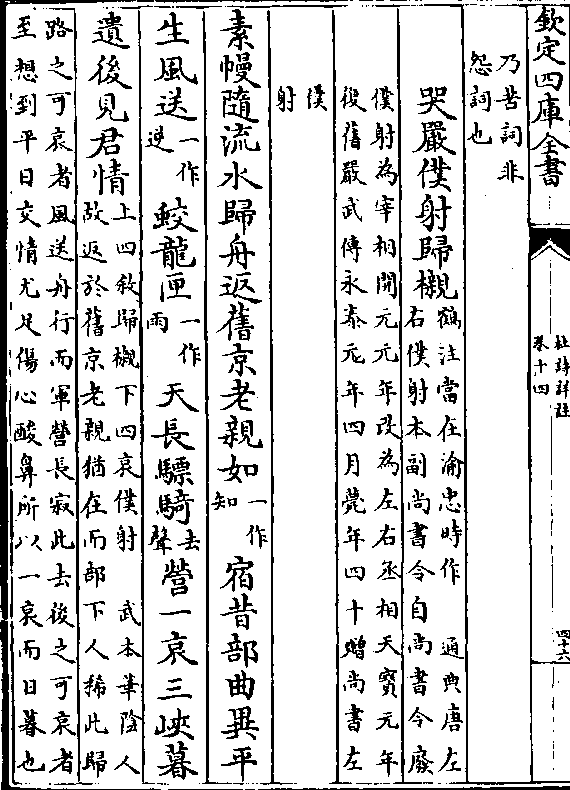 欽定四庫全書
杜詩詳註
卷十四
四十六
乃苦詞非
怨詞也
哭嚴僕射歸櫬
鶴注當在渝忠時作　通典唐左
右僕射本副尚書令自尚書令廢
僕射為宰相開元元年改為左右丞相天寶元年
復舊嚴武傳永泰元年四月薨年四十贈尚書左
僕
射
素幔隨流水歸舟返舊京老親如一作知宿昔部曲異平
生風送一作逆蛟龍匣一作雨天長驃騎去聲營一哀三峽暮
遺後見君情
上四敘歸櫬下四哀僕射　武本華陰人
故返於舊京老親猶在而部下人稀此歸
路之可哀者風送舟行而軍營長寂此去後之可哀者
至想到平日交情尤足傷心酸鼻所以一哀而日暮也